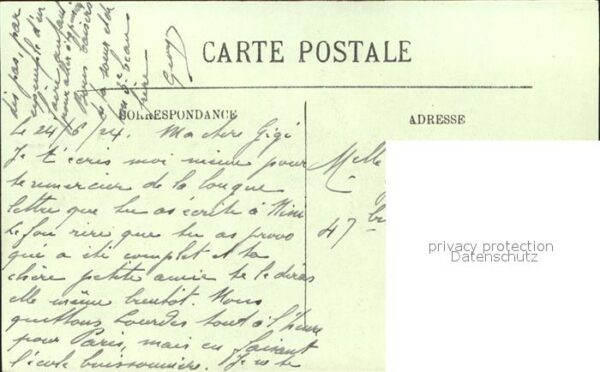 CARTE POSTALE
CORRESPONDANCE
ADRESSE
Le 24/6/24. Ma chère Gigi
Je t'écris moi même pour
te remercier de la longue
lettre que tu as écrite à Mimi
Le fou rire que tu as provo
qué a été complet et ta
chère petite amie te le diras
elle même bientôt. Nous
quittons Lourdes tout à l'heure
pour Paris, mais en faisant
l'école buissonnière. Je ne te
dis pas, par
exemple d'en
faire autant
pour
Bons baisers
à ta sœur et de
ton
frère
Georges
Melle
47
privacy protection
Datenschutz